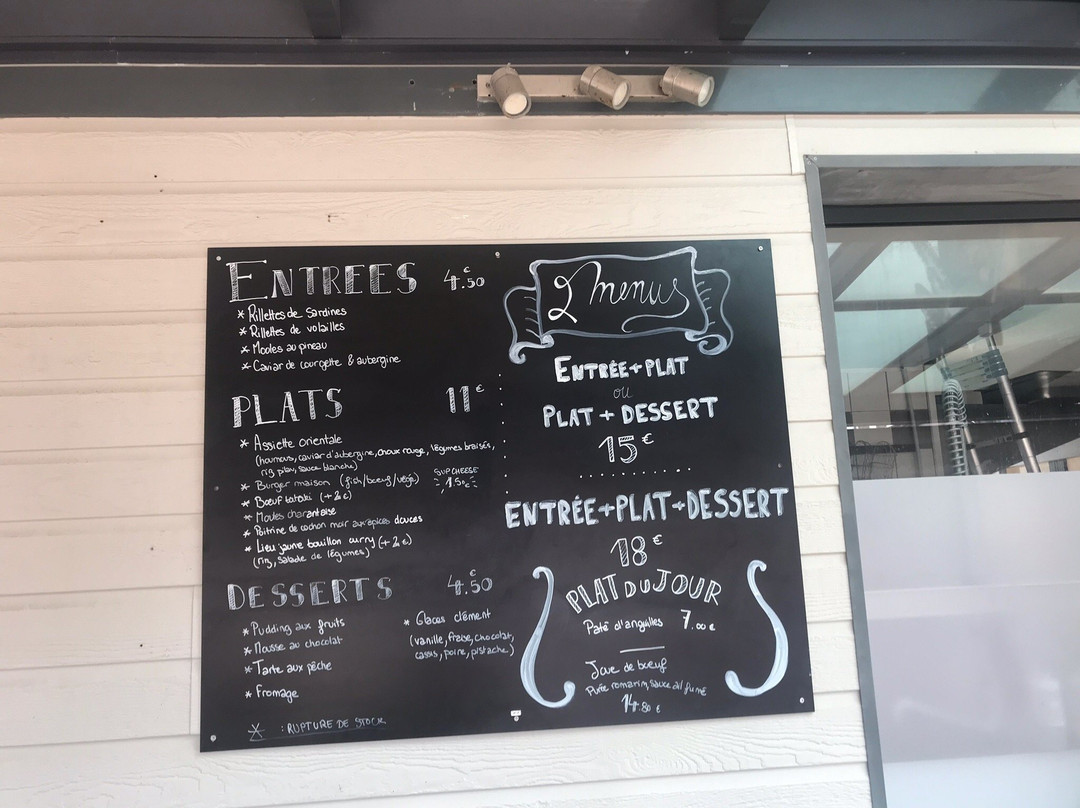 ENTREES 4.50€
* Rillettes de Sardines
* Rillettes de volailles
* Moules au pineau
* Caviar de courgette & aubergine
PLATS 11€
* Assiette orientale
(houmous, caviar d'aubergine, choux rouge, légumes braisés,
riz pilav, sauce blanche)
* Burger maison (fish/boeuf/végé) SUP CHEESE
1.50€
* Boeuf tataki (+2€)
* Moules charentaise
* Poitrine de cochon noir aux épices douces
* Lieu jaune bouillon curry (+2€)
(riz, salade de légumes)
DESSERTS 4.50€
* Pudding aux fruits
* Mousse au chocolat
* Tarte aux pêche
* Fromage
* Glaces clément
(vanille, fraise, chocolat,
cassis, poire, pistache)
* : RUPTURE DE STOCK
2 menus
ENTRÉE+PLAT
ou
PLAT + DESSERT
15€
ENTRÉE+PLAT+DESSERT
18€
PLAT DU JOUR
Paté d'anguilles 7.00€
Joue de boeuf
Purée romarin, sauce ail fumé
14.80€